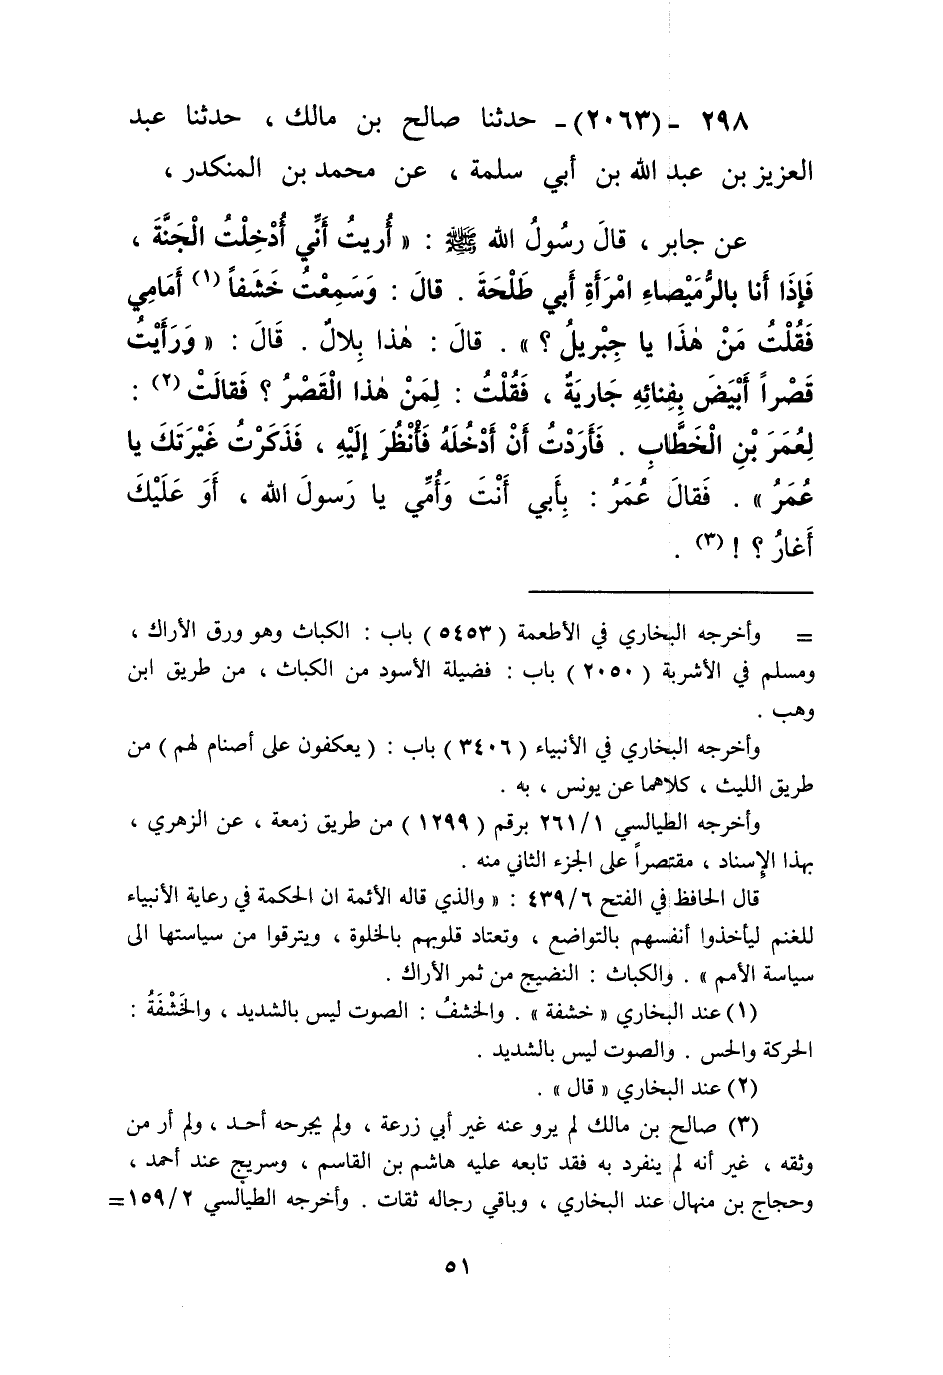 ٢٩٨ ـ (٢٠٦٣) ـ حدثنا صالح بن مالك ، حدثنا عبد
العزيز بن عبد الله بن أبي سلمة ، عن محمد بن المنكدر ،
عن جابر ، قالَ رسُولُ الله ﷺ : « أُريتُ أَنِّي أُدْخِلْتُ الْجَنَّةَ ،
فَإِذَا أَنا بالرُّمَيْصاءِ امْرَأَةِ أَبي طَلْحَةَ . قالَ : وَسَمِعْتُ خَشَفاً (١) أَمَامِي
فَقُلْتُ مَنْ هٰذَا يا جِبْريلُ ؟ » . قالَ : هٰذا بِلالٌ . قَالَ : « وَرَأَيْتُ
قَصْراً أَبْيَضَ بِفِنائِهِ جَارِيَةٌ ، فَقُلْتُ : لِمَنْ هٰذا الْقَصْرُ ؟ فَقالَتْ (٢) :
لِعُمَرَ بْنِ الْخَطَّابِ . فَأَرَدْتُ أَنْ أَدْخُلَهُ فَأَنْظُرَ إِلَيْهِ ، فَذَكَرْتُ غَيْرَتَكَ يا
عُمَرُ » . فَقالَ عُمَرُ : بِأَبي أَنْتَ وَأُمِّي يا رَسولَ الله ، أَوَ عَلَيْكَ
أَغارُ ؟ ! (٣) .
= وأخرجه البخاري في الأطعمة ( ٥٤٥٣ ) باب : الكباث وهو ورق الأراك ،
ومسلم في الأشربة ( ٢٠٥٠ ) باب : فضيلة الأسود من الكباث ، من طريق ابن
وهب .
وأخرجه البخاري في الأنبياء ( ٣٤٠٦ ) باب : ( يعكفون على أصنام لهم ) من
طريق الليث ، كلاهما عن يونس ، به .
وأخرجه الطيالسي ٢٦١/١ برقم ( ١٢٩٩ ) من طريق زمعة ، عن الزهري ،
بهذا الإسناد ، مقتصراً على الجزء الثاني منه .
قال الحافظ في الفتح ٤٣٩/٦ : « والذي قاله الأئمة ان الحكمة في رعاية الأنبياء
للغنم ليأخذوا أنفسهم بالتواضع ، وتعتاد قلوبهم بالخلوة ، ويترقوا من سياستها الى
سياسة الأمم » . والكباث : النضيج من ثمر الأراك .
(١) عند البخاري « خشفة » . والخشفُ : الصوت ليس بالشديد ، والخَشْفَةُ :
الحركة والحس . والصوت ليس بالشديد .
(٢) عند البخاري « قال » .
(٣) صالح بن مالك لم يرو عنه غير أبي زرعة ، ولم يجرحه أحد ، ولم أر من
وثقه ، غير أنه لم ينفرد به فقد تابعه عليه هاشم بن القاسم ، وسريج عند أحمد ،
وحجاج بن منهال عند البخاري ، وباقي رجاله ثقات . وأخرجه الطيالسي ١٥٩/٢=
٥١